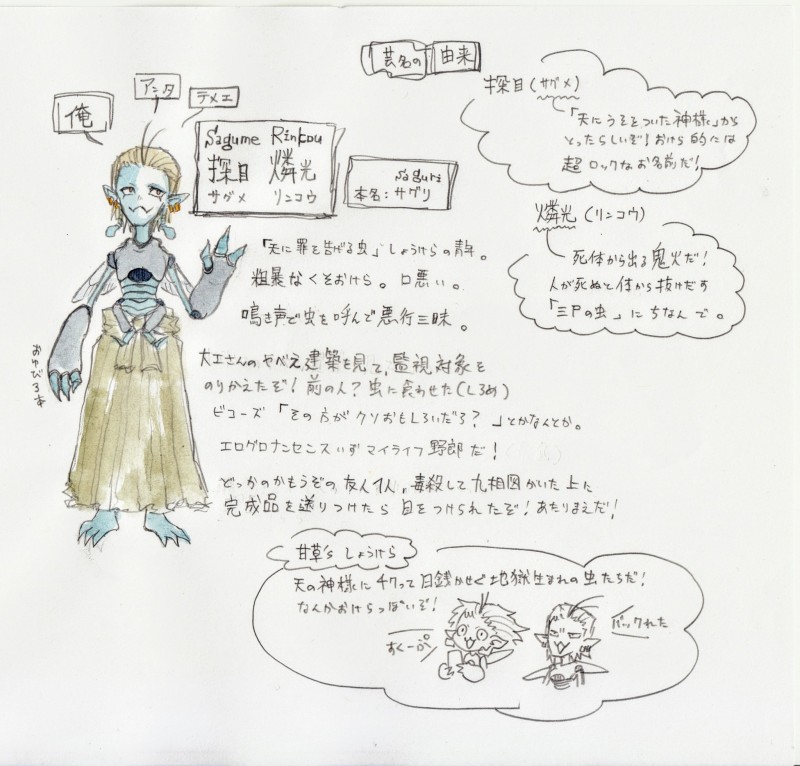 芸名の由来
探目(サグメ)
「天にうそをついた神様」から
とったらしいぞ!おけら的には
超ロックなお名前だ!
燐光(リンコウ)
死体から出る鬼火だ!
人が死ぬと体から抜けだす
「三尸の虫」にちなんで。
俺
アンタ
テメエ
Sagume Rinkou
探目 燐光
サグメ リンコウ
Saguri
本名:サグリ
「天に罪を告げる虫」しょうけらの青年。
粗暴なくそおけら。口悪い。
鳴き声で虫を呼んで悪行三昧。
おゆびる本
大工さんのやべえ建築を見て、監視対象を
のりかえたぞ!前の人?虫に食わせた(しるめ)
ビコーズ「その方がクソおもしろいだろ?」とかなんとか。
エログロナンセンスいずマイライフ野郎だ!
どっかのかもうぞの友人1人、毒殺して九相図かいた上に
完成品を送りつけたら目をつけられたぞ!あたりまえだ!
甘草's しょうけら
天の神様にチクって日銭かせぐ地獄生まれの虫たちだ!
なんかおけらっぽいぞ!
すくーぷ!
バックれた